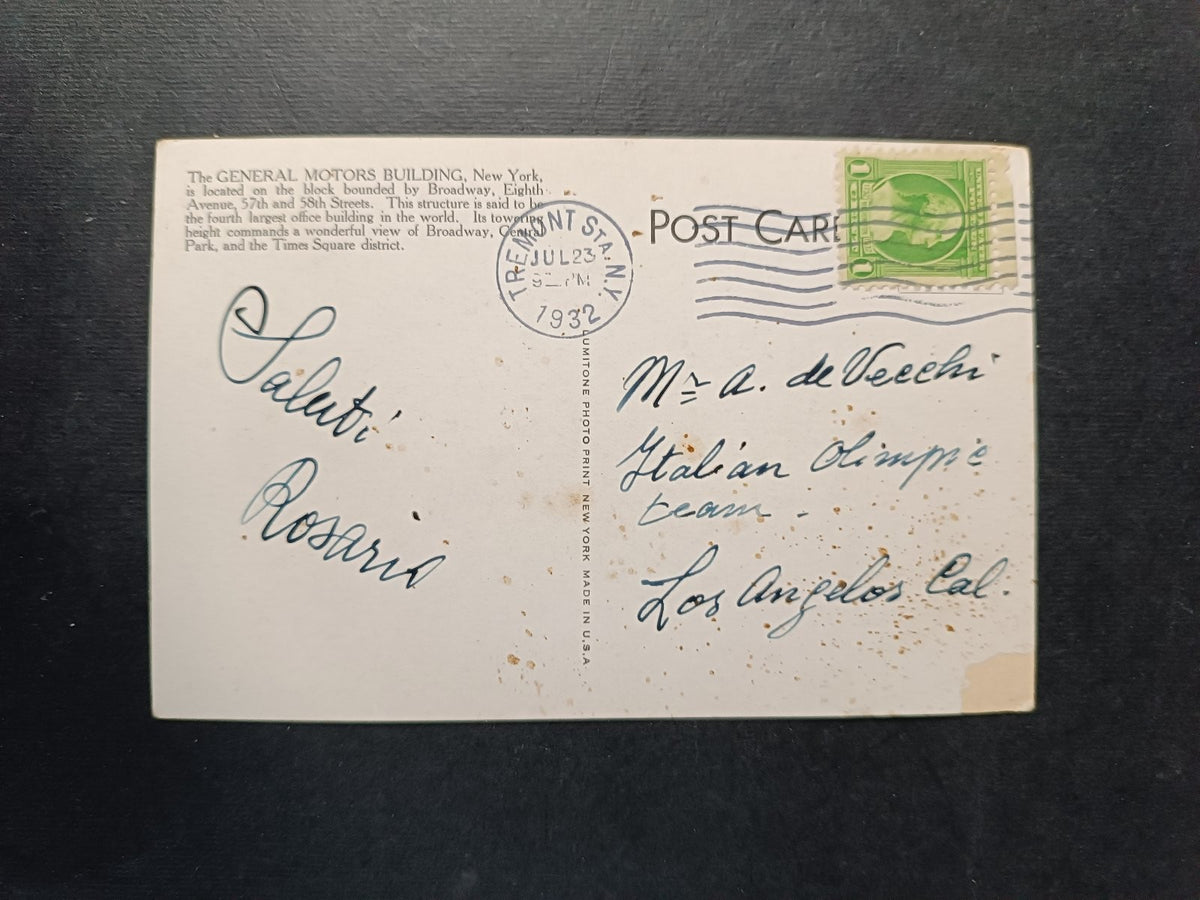 The GENERAL MOTORS BUILDING, New York,
is located on the block bounded by Broadway, Eighth
Avenue, 57th and 58th Streets. This structure is said to be
the fourth largest office building in the world. Its towering
height commands a wonderful view of Broadway, Central
Park, and the Times Square district.
TREMONT STA. N.Y.
JUL 23
PM
1932
POST CARD
1 1
Saluti
Rosario
LUMITONE PHOTO PRINT NEW YORK MADE IN U.S.A
Mr A. de Vecchi
Italian Olimpic
team.
Los Angelos Cal.